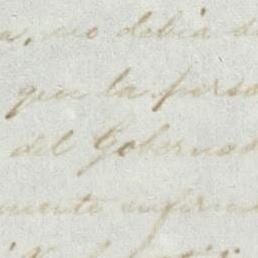 a, no debia d
que la perso
del Gobernad
mente enferm